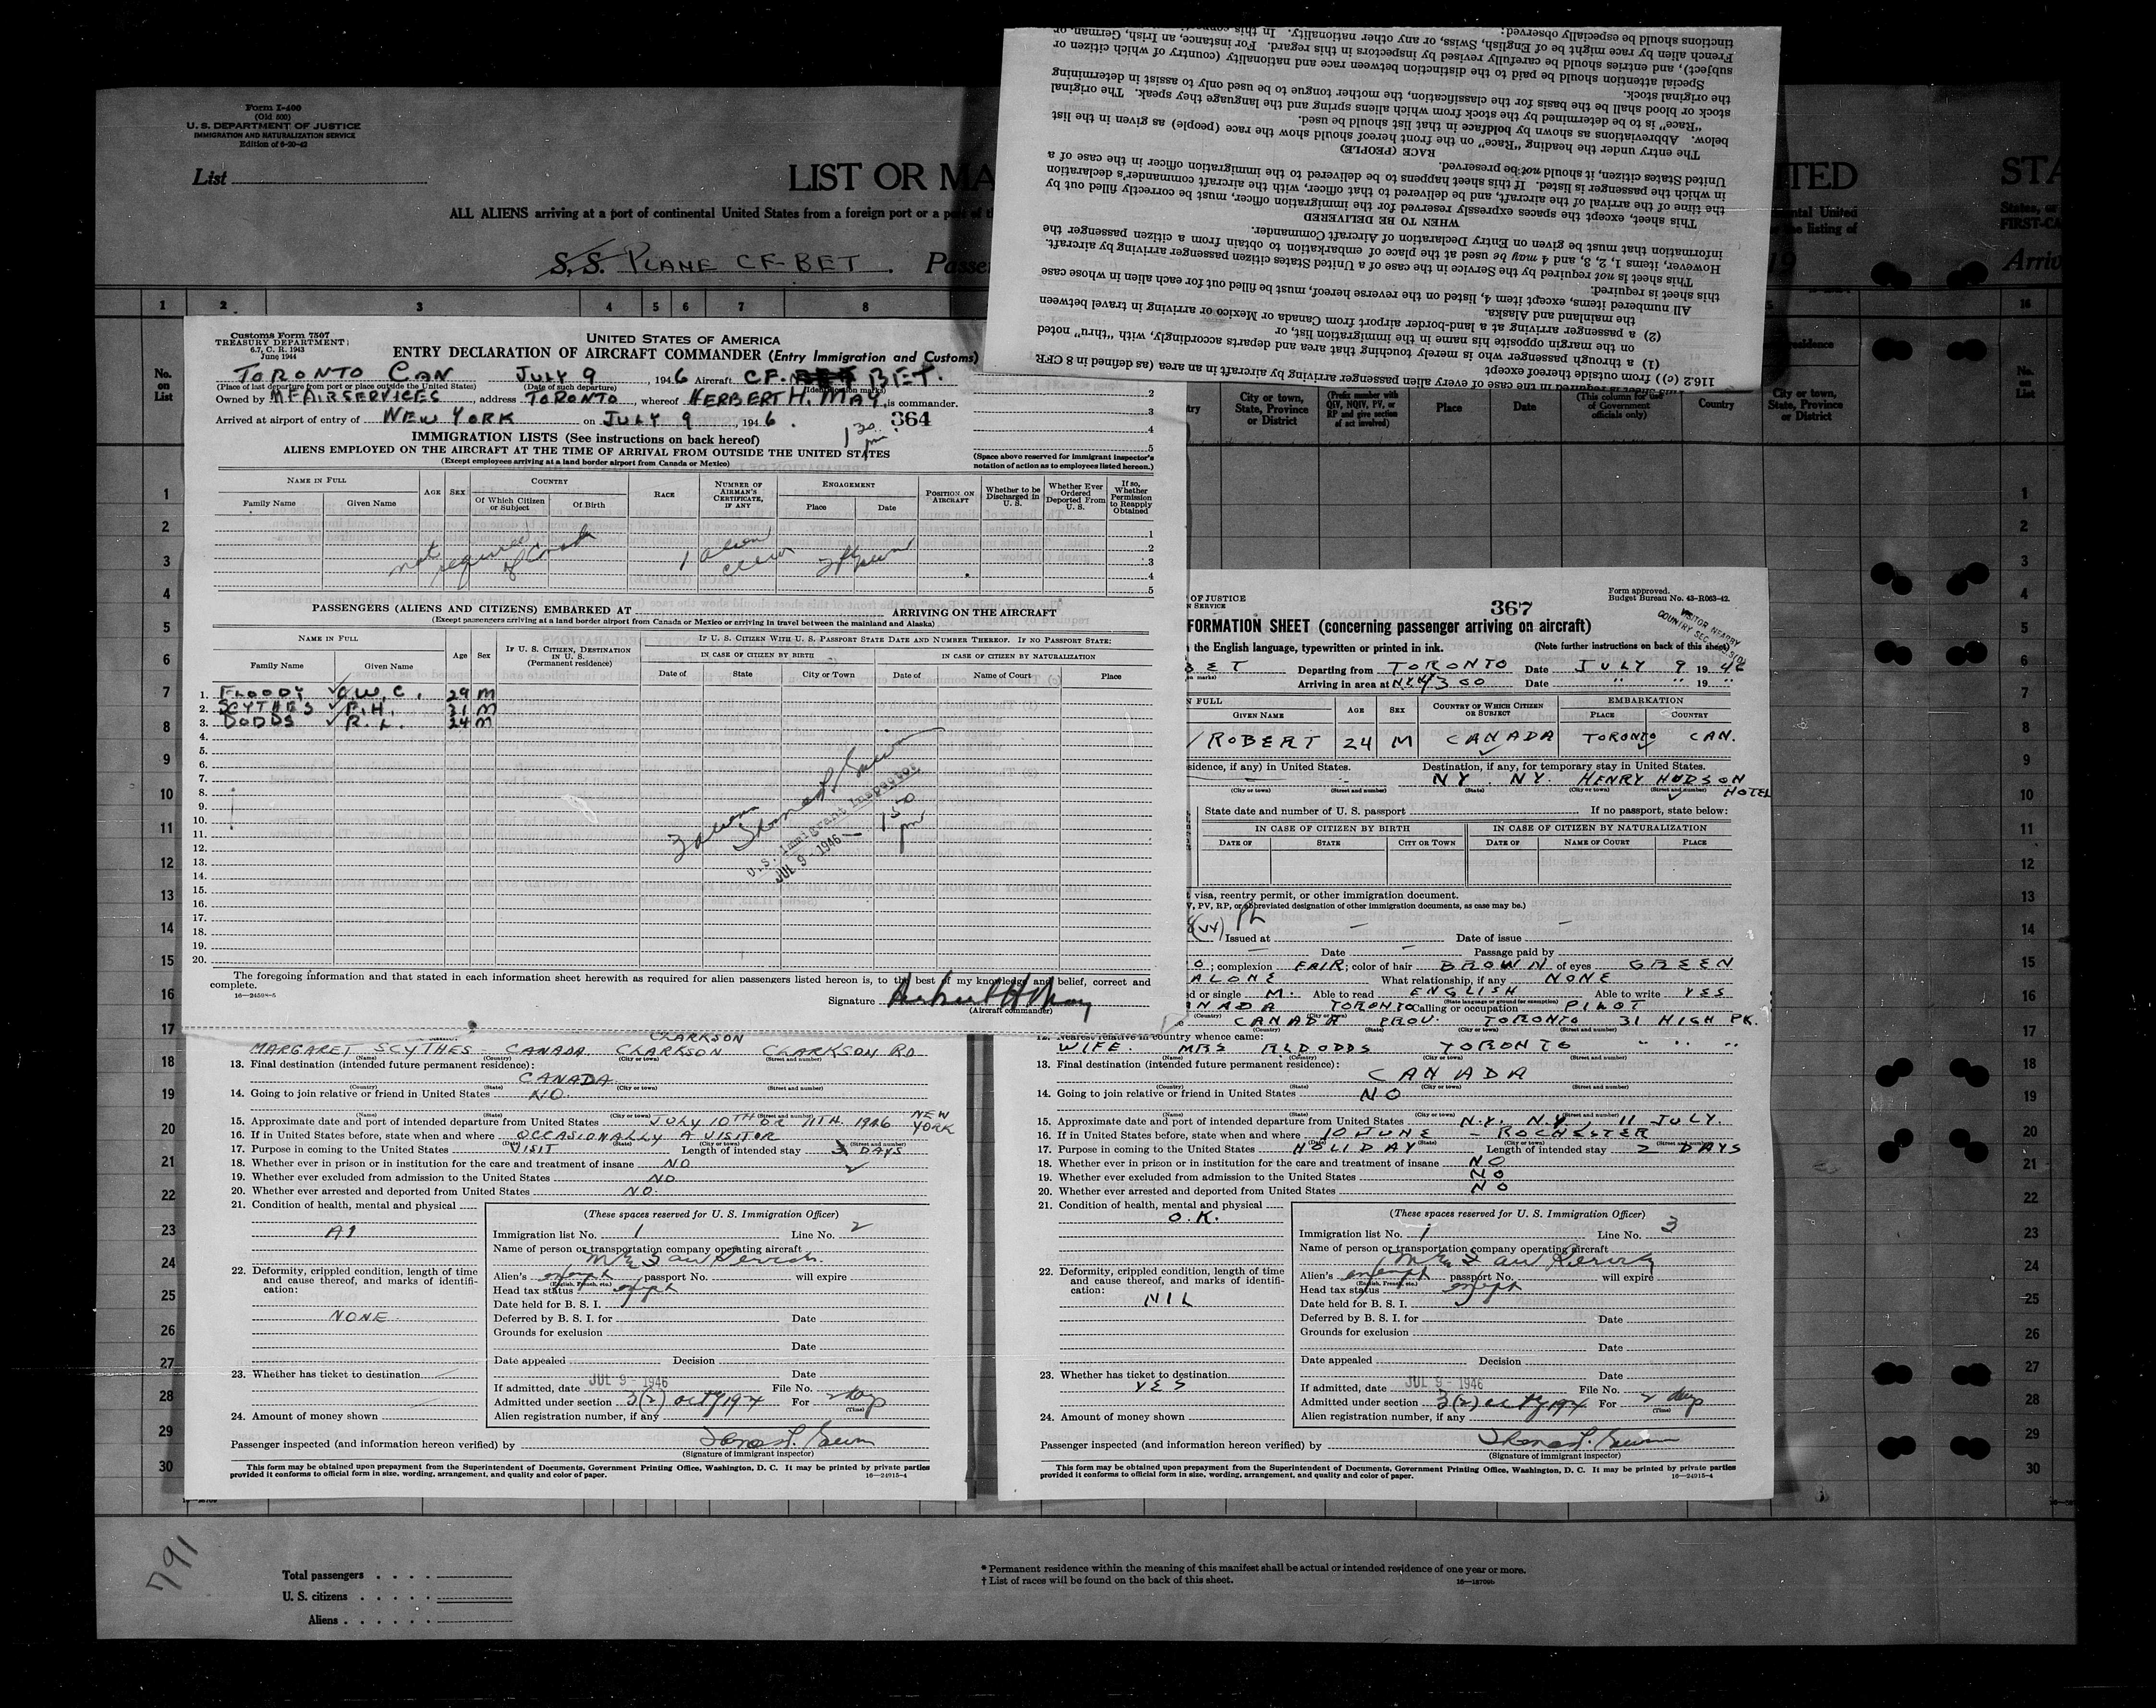 Form I-400
(Old 500)
U. S. DEPARTMENT OF JUSTICE
IMMIGRATION AND NATURALIZATION SERVICE
Edition of 6-20-42
List
LIST OR MA
ITED
STA
ALL ALIENS arriving at a port of continental United States from a foreign port or a
S. S. PLANE CF-BET.
1 2 3 4 5 6 7 8
16
tinctions should be especially observed:
French alien by race might be of English, Swiss, or any other nationality. For instance, an Irish, German, or
subject), and entries should be carefully revised by inspectors in this regard.
Special attention should be paid to the distinction between race and nationality (country of which citizen or
the original stock.
stock or blood shall be the basis for the classification, the mother tongue to be used only to assist in determining
"Race" is to be determined by the stock from which aliens spring and the language they speak. The original
below. Abbreviations as shown by boldface in that list should be used.
The entry under the heading "Race" on the front hereof should show the race (people) as given in the list
RACE (PEOPLE)
United States citizen, it should not be preserved.
in which the passenger is listed. If this sheet happens to be delivered to the immigration officer in the case of a
the time of the arrival of the aircraft, and be delivered to that officer, with the aircraft commander's declaration
This sheet, except the spaces expressly reserved for the immigration officer, must be correctly filled out by
WHEN TO BE DELIVERED
information that must be given on Entry Declaration of Aircraft Commander.
However, items 1, 2, 3, and 4 may be used at the place of embarkation to obtain from a citizen passenger the
This sheet is not required by the Service in the case of a United States citizen passenger arriving by aircraft.
this sheet is required.
All numbered items, except item 4, listed on the reverse hereof, must be filled out for each alien in whose case
the mainland and Alaska.
(2) a passenger arriving at a land-border airport from Canada or Mexico or arriving in travel between
on the margin opposite his name in the immigration list, or
(1) a through passenger who is merely touching that area and departs accordingly, with "thru" noted
116.2 (c)) from outside thereof except
Customs Form 7507
TREASURY DEPARTMENT
6.7, C. R. 1943
June 1944
UNITED STATES OF AMERICA
ENTRY DECLARATION OF AIRCRAFT COMMANDER (Entry Immigration and Customs)
TORONTO CAN JULY 9, 1946 Aircraft CF. BET.
(Place of last departure from port or place outside the United States) (Date of such departure) (Identification marks)
Owned by M F AIR SERVICES, address TORONTO, whereof HERBERT H. MAY, is commander.
Arrived at airport of entry of NEW YORK on JULY 9, 1946. 364
1 30 pm
IMMIGRATION LISTS (See instructions on back hereof)
ALIENS EMPLOYED ON THE AIRCRAFT AT THE TIME OF ARRIVAL FROM OUTSIDE THE UNITED STATES
(Except employees arriving at a land border airport from Canada or Mexico)
(Space above reserved for immigrant inspector's
notation of action as to employees listed hereon.)
NAME IN FULL AGE SEX COUNTRY RACE NUMBER OF AIRMAN'S CERTIFICATE, IF ANY ENGAGEMENT POSITION ON AIRCRAFT Whether to be Discharged in U. S. Whether Ever Ordered Deported From U. S. If so, Whether Permission to Reapply Obtained
Family Name Given Name Of Which Citizen or Subject Of Birth Place Date
not required of Canada 1 alien crew
PASSENGERS (ALIENS AND CITIZENS) EMBARKED AT ARRIVING ON THE AIRCRAFT
(Except passengers arriving at a land border airport from Canada or Mexico or arriving in travel between the mainland and Alaska)
NAME IN FULL Age Sex IF U. S. CITIZEN, DESTINATION IN U. S. (Permanent residence) IF U. S. CITIZEN WITH U. S. PASSPORT STATE DATE AND NUMBER THEREOF. IF NO PASSPORT STATE:
IN CASE OF CITIZEN BY BIRTH IN CASE OF CITIZEN BY NATURALIZATION
Family Name Given Name Date of State City or Town Date of Name of Court Place
1. FLOODY C.W.C. 29 M
2. SCYTHES F.H. 31 M
3. DODDS R.L. 24 M
4.
5.
6.
7.
8.
9.
10.
11.
12.
13.
14.
15.
16.
17.
18.
19.
20.
3 aliens
U. S. Immigrant Inspector
JUL 9 - 1946
1 50 pm
The foregoing information and that stated in each information sheet herewith as required for alien passengers listed hereon is, to the best of my knowledge and belief, correct and
complete.
16-24598-5
Signature Herbert H May
(Aircraft commander)
OF JUSTICE
N SERVICE
367
Form approved.
Budget Bureau No. 43-R063-42.
FORMATION SHEET (concerning passenger arriving on aircraft)
the English language, typewritten or printed in ink. (Note further instructions on back of this sheet)
BET Departing from TORONTO Date JULY 9 1946
Arriving in area at Date " " 19 "
N FULL GIVEN NAME AGE SEX COUNTRY OF WHICH CITIZEN OR SUBJECT EMBARKATION PLACE COUNTRY
ROBERT 24 M CANADA TORONTO CAN.
sidence, if any) in United States. Destination, if any, for temporary stay in United States.
NY. NY. HENRY HUDSON HOTEL
(City or town) (Street and number) (State) (City or town) (Street and number)
State date and number of U. S. passport If no passport, state below:
IN CASE OF CITIZEN BY BIRTH IN CASE OF CITIZEN BY NATURALIZATION
DATE OF STATE CITY OR TOWN DATE OF NAME OF COURT PLACE
visa, reentry permit, or other immigration document.
V, PV, RP, or abbreviated designation of other immigration documents, as case may be.)
Issued at Date of issue
Date Passage paid by
; complexion FAIR; color of hair BROWN of eyes GREEN
ALONE What relationship, if any NONE
d or single M. Able to read ENGLISH Able to write YES
NADA TORONTO Calling or occupation PILOT
CANADA PROV. TORONTO 31 HIGH PK.
12. Nearest relative in country whence came:
WIFE. MRS RL DODDS TORONTO " " "
13. Final destination (intended future permanent residence):
CANADA
14. Going to join relative or friend in United States NO
15. Approximate date and port of intended departure from United States N.Y. N.Y. 11 JULY.
16. If in United States before, state when and where 10 JUNE - ROCHESTER
17. Purpose in coming to the United States HOLIDAY Length of intended stay 2 DAYS
18. Whether ever in prison or in institution for the care and treatment of insane NO
19. Whether ever excluded from admission to the United States NO
20. Whether ever arrested and deported from United States NO
21. Condition of health, mental and physical O.K.
(These spaces reserved for U. S. Immigration Officer)
Immigration list No. 1 Line No. 3
Name of person or transportation company operating aircraft
22. Deformity, crippled condition, length of time and cause thereof, and marks of identification:
NIL
Alien's exempt passport No. will expire
Head tax status exempt
Date held for B. S. I.
Deferred by B. S. I. for Date
Grounds for exclusion
Date
Date appealed Decision
Date
23. Whether has ticket to destination YES
If admitted, date JUL 9 - 1946 File No.
Admitted under section 3(2) For 2 days
(Time)
24. Amount of money shown
Alien registration number, if any
Passenger inspected (and information hereon verified) by
(Signature of immigrant inspector)
This form may be obtained upon prepayment from the Superintendent of Documents, Government Printing Office, Washington, D. C. It may be printed by private parties
provided it conforms to official form in size, wording, arrangement, and quality and color of paper. 16-24915-4
CLARKSON
MARGARET SCYTHES CANADA CLARKSON CLARKSON RD
13. Final destination (intended future permanent residence):
CANADA
14. Going to join relative or friend in United States NO.
15. Approximate date and port of intended departure from United States JULY 10TH OR 11TH. 1946 NEW YORK
16. If in United States before, state when and where OCCASIONALLY A VISITOR
17. Purpose in coming to the United States VISIT Length of intended stay DAYS
18. Whether ever in prison or in institution for the care and treatment of insane NO
19. Whether ever excluded from admission to the United States NO
20. Whether ever arrested and deported from United States NO.
21. Condition of health, mental and physical
A1
(These spaces reserved for U. S. Immigration Officer)
Immigration list No. 1 Line No. 2
Name of person or transportation company operating aircraft
22. Deformity, crippled condition, length of time and cause thereof, and marks of identification:
NONE.
Alien's exempt passport No. will expire
Head tax status exempt
Date held for B. S. I.
Deferred by B. S. I. for Date
Grounds for exclusion
Date
Date appealed Decision
Date
23. Whether has ticket to destination
If admitted, date JUL 9 - 1946 File No.
Admitted under section 3(2) For 2 days
(Time)
24. Amount of money shown
Alien registration number, if any
Passenger inspected (and information hereon verified) by
(Signature of immigrant inspector)
This form may be obtained upon prepayment from the Superintendent of Documents, Government Printing Office, Washington, D. C. It may be printed by private parties
provided it conforms to official form in size, wording, arrangement, and quality and color of paper. 16-24915-4
791
Total passengers
U. S. citizens
Aliens
* Permanent residence within the meaning of this manifest shall be actual or intended residence of one year or more.
† List of races will be found on the back of this sheet.